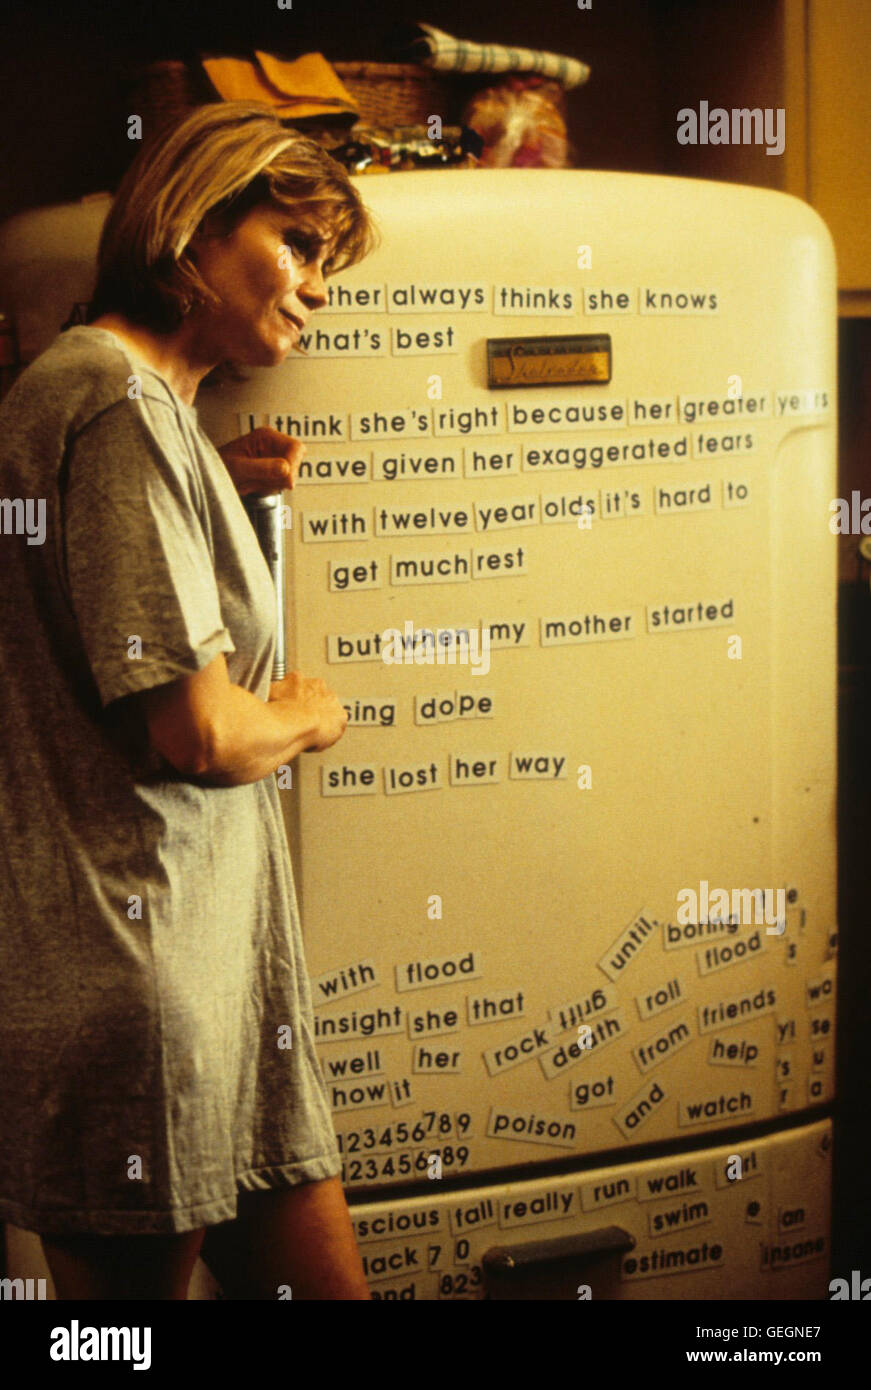 ther always thinks she knows
what's best
I think she's right because her greater years
have given her exaggerated fears
with twelve year olds it's hard to
get much rest
but when my mother started
sing dope
she lost her way
until, boring
with flood
flood s
insight she that
roll
rock death from friends wo
well her
help yi se
how it got 's u
poison and watch r a
123456789
123456789
scious fall really run walk girl
swim e an
lack 70
estimate insane
and 823
alamy
Image ID: GEGNE7
www.alamy.com